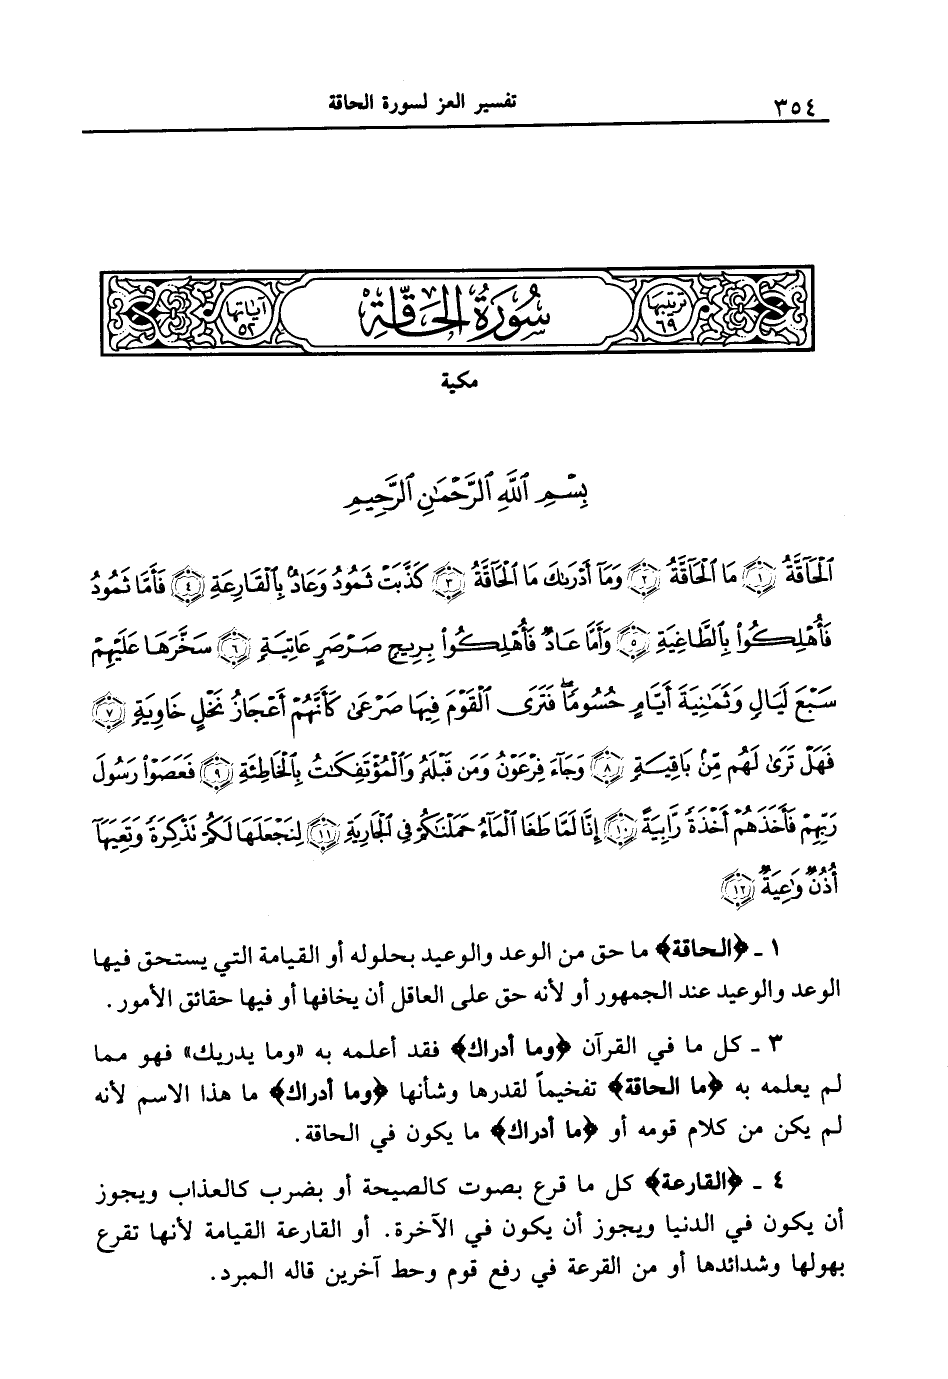 ٣٥٤
تفسير العز لسورة الحاقة
ترتيبها
٦٩
سُورَةُ الحَاقَّةِ
آياتها
٥٢
مكية
بِسْمِ ٱللَّهِ ٱلرَّحْمَٰنِ ٱلرَّحِيمِ
ٱلْحَآقَّةُ ﴿١﴾ مَا ٱلْحَآقَّةُ ﴿٢﴾ وَمَآ أَدْرَىٰكَ مَا ٱلْحَآقَّةُ ﴿٣﴾ كَذَّبَتْ ثَمُودُ وَعَادٌۢ بِٱلْقَارِعَةِ ﴿٤﴾ فَأَمَّا ثَمُودُ
فَأُهْلِكُوا۟ بِٱلطَّاغِيَةِ ﴿٥﴾ وَأَمَّا عَادٌ فَأُهْلِكُوا۟ بِرِيحٍ صَرْصَرٍ عَاتِيَةٍ ﴿٦﴾ سَخَّرَهَا عَلَيْهِمْ
سَبْعَ لَيَالٍ وَثَمَٰنِيَةَ أَيَّامٍ حُسُومًا ۖ فَتَرَى ٱلْقَوْمَ فِيهَا صَرْعَىٰ كَأَنَّهُمْ أَعْجَازُ نَخْلٍ خَاوِيَةٍ ﴿٧﴾
فَهَلْ تَرَىٰ لَهُم مِّنۢ بَاقِيَةٍ ﴿٨﴾ وَجَآءَ فِرْعَوْنُ وَمَن قَبْلَهُۥ وَٱلْمُؤْتَفِكَٰتُ بِٱلْخَاطِئَةِ ﴿٩﴾ فَعَصَوْا۟ رَسُولَ
رَبِّهِمْ فَأَخَذَهُمْ أَخْذَةً رَّابِيَةً ﴿١٠﴾ إِنَّا لَمَّا طَغَا ٱلْمَآءُ حَمَلْنَٰكُمْ فِى ٱلْجَارِيَةِ ﴿١١﴾ لِنَجْعَلَهَا لَكُمْ تَذْكِرَةً وَتَعِيَهَآ
أُذُنٌ وَٰعِيَةٌ ﴿١٢﴾
١ ـ ﴿الحاقة﴾ ما حق من الوعد والوعيد بحلوله أو القيامة التي يستحق فيها
الوعد والوعيد عند الجمهور أو لأنه حق على العاقل أن يخافها أو فيها حقائق الأمور.
٣ ـ كل ما في القرآن ﴿وما أدراك﴾ فقد أعلمه به «وما يدريك» فهو مما
لم يعلمه به ﴿ما الحاقة﴾ تفخيماً لقدرها وشأنها ﴿وما أدراك﴾ ما هذا الاسم لأنه
لم يكن من كلام قومه أو ﴿ما أدراك﴾ ما يكون في الحاقة.
٤ ـ ﴿القارعة﴾ كل ما قرع بصوت كالصيحة أو بضرب كالعذاب ويجوز
أن يكون في الدنيا ويجوز أن يكون في الآخرة. أو القارعة القيامة لأنها تقرع
بهولها وشدائدها أو من القرعة في رفع قوم وحط آخرين قاله المبرد.